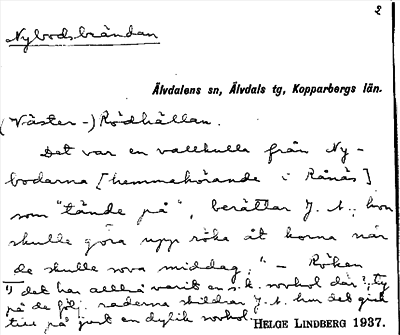 2
Nybodsbrändan
Älvdalens sn, Älvdals tg, Kopparbergs län.
(Väster-) Rödhällan.
Det var en vallkulla från Ny-
bodarna [hemmahörande i Rånäs]
som "tände på", berättar J. A.; hon
skulle göra upp röke åt korna när
de skulle sova middag." – Röken
1) det har alltså varit en s.k. sovhol där; ty
på de följ. raderna skildrar J. A. hur det gick
till på just en dylik sovhol.
HELGE LINDBERG 1937.